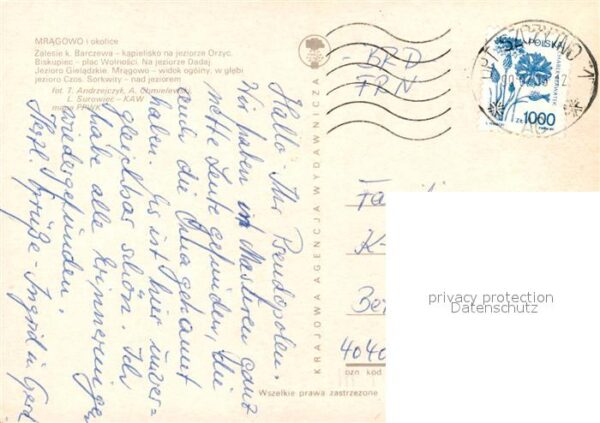 MRĄGOWO i okolice
Zalesie k. Barczewa – kąpielisko na jeziorze Orzyc.
Biskupiec – plac Wolności. Na jeziorze Dadaj
Jezioro Gielądzkie. Mrągowo – widok ogólny, w głębi
jezioro Czos. Sorkwity – nad jeziorem
fot. T. Andrzejczyk, A.
L. Surowiec – KAW
KRAJOWA AGENCJA WYDAWNICZA
Wszelkie prawa zastrzeżone
Hallo Ihr Pseudopolen.
Wir haben in Masuren ganz
nette Leute gefunden, die
die Oma gekannt
haben. Es ist hier unver-
gleichbar schön. Ich
habe alle Erinnerungen
wiedergefunden.
Herzl. Grüße - Ingrid u. Gerd
- BRD
FRN
POLSKA
1000
ZŁ
SZCZYTNO 1
Fa
K-
4040
ozn kod
privacy protection
Datenschutz